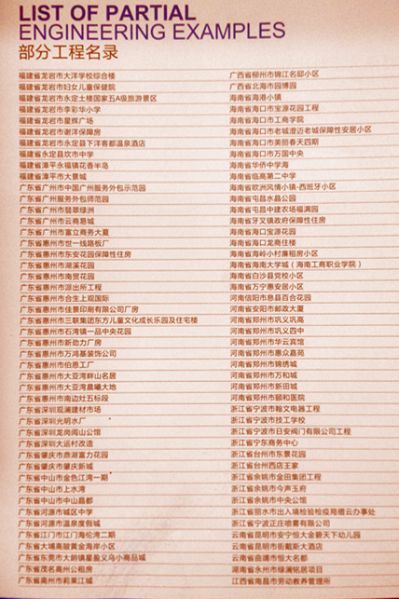 LIST OF PARTIAL
ENGINEERING EXAMPLES
部分工程名录
福建省龙岩市大洋学校综合楼
福建省龙岩市妇女儿童保健院
福建省龙岩市永定土楼国家五A级旅游景区
福建省龙岩市李彩华小学
福建省龙岩市星辉广场
福建省龙岩市谢洋保障房
福建省龙岩市永定县下洋客都温泉酒店
福建省永定县坎市中学
福建省漳平永福镇花香半岛
福建省漳平市大景城
广东省广州市中国广州服务外包示范园
广东省广州服务外包师范园
广东省广州市翡翠绿洲
广东省广州市云商易城
广东省广州市富立商务大厦
广东省惠州市世一线路板厂
广东省惠州市东安花园保障性住房
广东省惠州市湖溪花园
广东省惠州市南贸花园
广东省惠州市派出所工程
广东省惠州市合生上观国际
广东省惠州市佳景印刷有限公司厂房
广东省惠州市三联集团东方儿童文化成长乐园及住宅楼
广东省惠州市石湾镇一品中央花园
广东省惠州市新劲力厂房
广东省惠州市万鸿基装饰公司
广东省惠州市伯恩工厂
广东省惠州市大亚湾畔山名居
广东省惠州市大亚湾晨曦大地
广东省惠州市南边灶五标段
广东省深圳观澜建材市场
广东省深圳光明水厂
广东省深圳龙岗阅山公馆
广东省深圳大运村改造
广东省肇庆市鼎湖富力花园
广东省肇庆市肇庆新城
广东省中山市金色江湾一期
广东省中山市上水湾
广东省中山市中山晶都
广东省河源市城区中学
广东省河源市温泉度假城
广东省江门市江门海伦湾二期
广东省大埔高陂黄金海岸小区
广东省东莞市大朗镇星盈义乌小商品城
广东省茂名高州公租房
广东省高州市莉莱江城
广西省柳州市锦江名邸小区
广西省北海市园博园
海南省海港小镇
海南省海口市宝源花园工程
海南省海口市工商学院
海南省海口市老城澄迈老城保障性安居小区
海南省海口市美丽春天四期
海南省海口市万国中央
海南省华侨中学海
海南省临高第二中学
海南省欧洲风情小镇-西班牙小区
海南省屯昌水晶公园
海南省屯昌中建农场福满园
海南省牙叉镇政府保障性住房
海南省海口宝源花园
海南省海口龙商住楼
海南省海岭小村廉租房小区
海南省海南大学城（海南工商职业学院）
海南省白沙县党校小区
海南省万宁惠安居小区
河南信阳市息县百合花园
河南省安阳市邮政大厦
河南省郑州市巩义巩高
河南省郑州市巩义四中
河南省郑州市华云宾馆
河南省郑州市惠众嘉苑
河南省郑州市锦绣城
河南省郑州市万和城
河南省郑州市新田城
河南省郑州市颐和医院
浙江省宁波市翰文电器工程
浙江省宁波市技工学校
浙江省宁波市日安阀门有限公司工程
浙江省宁东商务中心
浙江省台州市东景花园
浙江省台州酒店王家
浙江省余姚市金田集团工程
浙江省余姚市今声玉府
浙江省余姚市中央公馆
浙江省丽水市出入境检验检疫局缙云办事处
浙江省宁波正庄喷雾有限公司
云南省昆明市安宁恒大金碧天下幼儿园
云南省昆明市街戴斯大酒店
云南省曲靖市恒大名都
湖南省永州市绿澜铭居项目
江西省南昌市劳动教养管理所